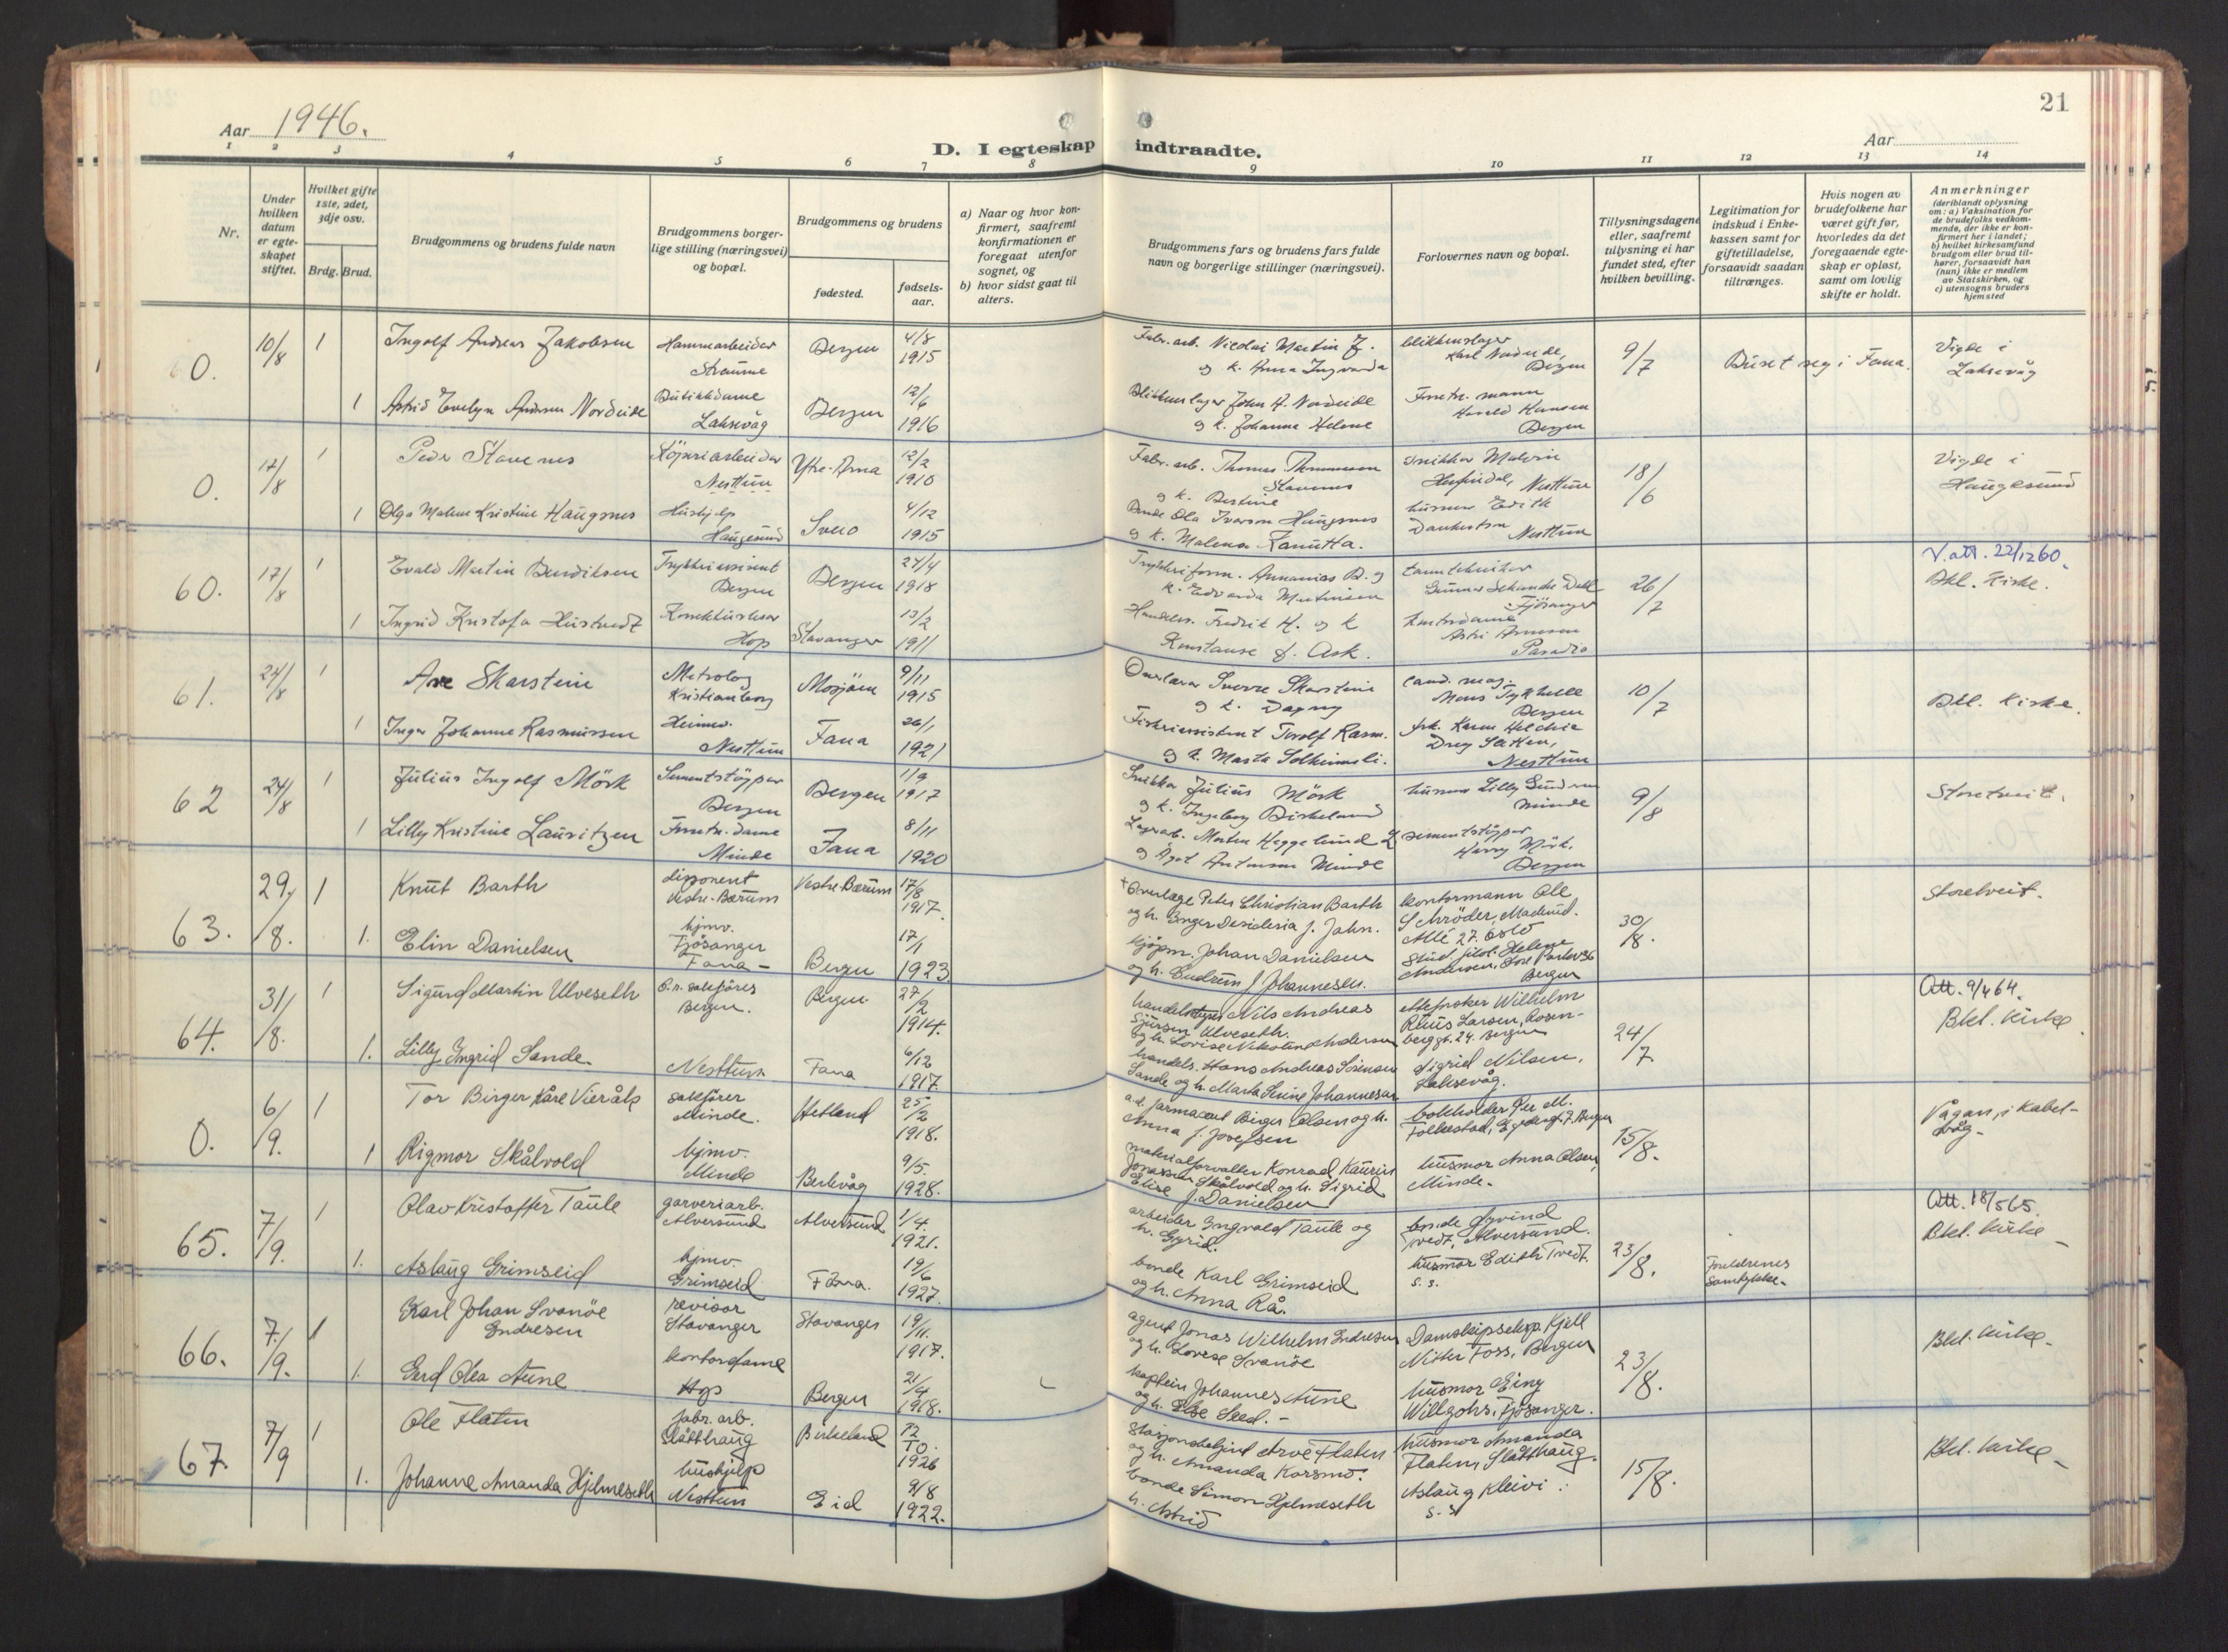 21
Aar 1946.
Aar
D. I egteskap indtraadte.
1 2 3 4 5 6 7 8 9 10 11 12 13 14
Nr.
Under hvilken datum er egteskapet stiftet.
Hvilket gifte 1ste, 2det, 3dje osv.
Brdg. Brud.
Brudgommens og brudens fulde navn
Brudgommens borgerlige stilling (næringsvei) og bopæl.
Brudgommens og brudens
fødested.
fødselsaar.
a) Naar og hvor konfirmert, saafremt konfirmationen er foregaat utenfor sognet, og
b) hvor sidst gaat til alters.
Brudgommens fars og brudens fars fulde navn og borgerlige stillinger (næringsvei).
Forlovernes navn og bopæl.
Tillysningsdagene eller, saafremt tillysning ei har fundet sted, efter hvilken bevilling.
Legitimation for indskud i Enkekassen samt for giftetilladelse, forsaavidt saadan tiltrænges.
Hvis nogen av brudefolkene har været gift før, hvorledes da det foregaaende egteskap er opløst, samt om lovlig skifte er holdt.
Anmerkninger
(deriblandt oplysning om: a) Vaksination for de brudefolks vedkommende, der ikke er konfirmert her i landet;
b) hvilket kirkesamfund brudgom eller brud tilhører, forsaavidt han (hun) ikke er medlem av Statskirken, og
c) utensogns bruders hjemsted
0. 10/8 1 Ingolf Andreas Jakobsen
Straume
Bergen 4/8 1915
Fabr. arb. Nicolai Martin J.
og h. Anna Ingvarda
blikkenslager
Bergen
9/7
Buset seg i Fana.
Vigde i
Laksevåg
1 Astrid Evelyn Andrea Nordeide
Butikkdame
Laksevåg
Bergen 12/6 1916
Blikkenslager John A. Nordeide
og h. Johanna Helene
Harald Hansen
Bergen
0. 17/8 1 Peder Stavenes
Nesttun
Ytre-Arna 12/2 1910
Fabr. arb. Thomas
Stavenes
og h. Bertine
Snikker
Nesttun
18/6
Vigde i
Haugesund
1 Olga Malene Kristine Haugsnes
Hushjelp
Haugesund
Sveio 4/12 1915
Bonde Ola Iversen Haugsnes
og h. Malena
husmor Edith
Nesttun
60. 17/8 1 Evald Martin Bendiksen
Bergen
Bergen 27/4 1918
Gunnar
Fjösanger
26/7
V. att. 22/12 60.
Bkl. Kirke.
1 Ingrid Kristofa Hustvedt
Korrekturleser
Hop
Stavanger 13/2 1911
Handelsr. Fredrik H. og h.
Konstanse f. Ask.
Kontordame
Paradis
61. 24/8 1 Are Skarstein
Kristianborg
Mosjöen 9/11 1915
Overlærer Sverre Skarstein
og h. Dagny
cand. mag.
Bergen
10/7
Bkl. Kirke.
1 Inger Johanne Rasmussen
Heimev.
Nesttun
Fana 26/1 1921
Fiskeriassistent Torolf Rasm.
og h. Marta Solheimsli.
Nesttun
62 24/8 1 Julius Ingolf Mörk
Sementstöyper
Bergen
Bergen 1/9 1917
Snikker Julius Mörk
og h. Ingeborg Birkeland
husmor Lilly Gudrun
Minde
9/8
Storetveit.
1 Lilly Kristine Lauritzen
Forretn. dame
Minde
Fana 8/11 1920
Lagerarb. Morten Heggelund L
og Ågot Antonsen Minde
sementstöyper
Harry Mörk.
Bergen
63. 29/8. 1 Knut Barth
disponent
Vestre-Bærum
Vestre-Bærum 17/8 1917.
+Overlæge Peter Christian Barth
og h. Inger Desideria f. Jahn.
kontormann Ole
Schröder,
Allé 27. Oslo
30/8.
Storetveit.
1. Elin Danielsen
hjmv.
Fjösanger
Fana -
Bergen 17/1 1923
kjöpm. Johan Danielsen
og h. Gudrun f. Johannesen.
Stud. filol. Helene
Andersen, Store Parkv. 36
Bergen
64. 31/8. 1 Sigurd Martin Ulveseth
o.r. sakförer
Bergen.
Bergen 27/2 1914.
Nils Andreas
Sjursen Ulveseth.
og h. Lovise Nikoline Andersen
Wilhelm
Larsen, Rosen-
berggt. 24. Bergen
24/7
Att. 9/4 64.
Bkl. Kirke.
1. Lilly Ingrid Sande.
Nesttun
Fana 6/12 1917
handels. Hans Andreas Sörensen
Sande og h. Marta Serine Johannesen
Sigrid Nilsen.
Laksevåg.
0. 6/9. 1 Tor Birger Kåre Vieråls
sakförer
Minde.
Hetland 25/2 1918.
a.d. farmaceut Birger Olsen og h.
Anna f. Josefsen
bokholder Per M.
Folkestad, Bergen
15/8.
Vågan, i Kabel-
våg-
1 Rigmor Skålvold
hjmv.
Minde
Berlevåg 9/5. 1928.
materialforvalter Konrad Kaurin
Jonassen Skålvold og h. Sigrid
Elise f. Danielsen
husmor Anna Olsen,
Minde-
65. 7/9. 1 Olav Kristoffer Taule
garveriarb.
Alversund
Alversund 1/4. 1921.
arbeider Ingvald Taule og
h. Gyrid.
bonde Öyvind
Tvedt, Alversund.
23/8.
Att. 18/5 65.
Bkl. Kirke -
1. Aslaug Grimseid
hjmv.
Grimseid
Fana. 19/6 1927.
bonde Karl Grimseid
og h. Anna Rå.
husmor Edith Tvedt.
s. s.
Foreldrenes
samtykke-
66. 7/9. 1 Karl Johan Svanöe
Endresen
revisor
Stavanger
Stavanger 19/11. 1917.
agent Jonas Wilhelm Endresen
og h. Lovise Svanöe
Damskipseksp. Kjell
Nitter Foss, Bergen
23/8.
Bkl. Kirke -
1. Gerd Olea Aune
kontordame
Hop
Bergen 21/4 1918.
kaptein Johannes Aune
og h. Else Seed. -
husmor Einy
Willgohs, Fjösanger.
67. 7/9 1 Ole Flaten
fabr. arb.
Slåtthaug
Birkeland 12/10. 1926
Stasjonsbetjent Arve Flaten
og h. Amanda Korsmo.
husmor Amanda
Flaten, Slåtthaug.
15/8.
Bkl. Kirke -
1. Johanne Amanda Hjelmeseth
hushjelp
Nesttun
Eid 9/8 1922.
bonde Simon Hjelmeseth
h. Astrid
Aslaug Kleivi.
s. s.